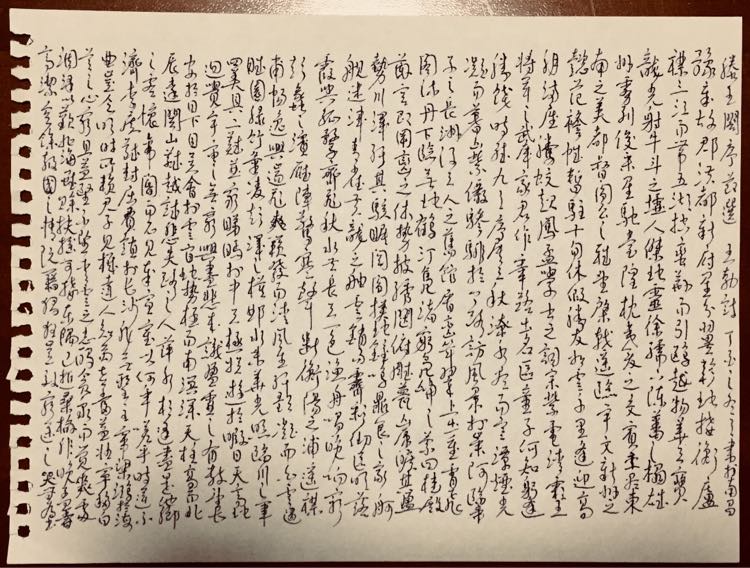 滕王閣序節選 王勃詩 丁酉之冬書於南昌
豫章故郡洪都新府星分翼軫地接衡廬
襟三江而帶五湖控蠻荊而引甌越物華天寶
龍光射牛斗之墟人傑地靈徐孺下陳蕃之榻雄
州霧列俊采星馳臺隍枕夷夏之交賓主盡東
南之美都督閻公之雅望棨戟遙臨宇文新州之
懿範襜帷暫駐十旬休假勝友如雲千里逢迎高
朋滿座騰蛟起鳳孟學士之詞宗紫電清霜王
將軍之武庫家君作宰路出名區童子何知躬逢
勝餞時維九月序屬三秋潦水盡而寒潭煙光
凝而暮山紫儼驂騑於上路訪風景於崇阿臨帝
子之長洲得天人之舊館層巒聳翠上出重霄飛
閣流丹下臨無地鶴汀鳧渚窮島嶼之縈迴桂殿
蘭宮即岡巒之體勢披繡闥俯雕甍山原曠其盈
視川澤紆其駭矚閭閻撲地鐘鳴鼎食之家舸
艦迷津青雀黃龍之舳雲銷雨霽彩徹區明落
霞與孤鶩齊飛秋水共長天一色漁舟唱晚響窮
彭蠡之濱雁陣驚寒聲斷衡陽之浦遙襟
甫暢逸興遄飛爽籟發而清風生纖歌凝而白雲遏
睢園綠竹氣凌彭澤之樽鄴水朱華光照臨川之筆
四美具二難並窮睇眄於中天極娛遊於暇日天高地
迥覺宇宙之無窮興盡悲來識盈虛之有數望長
安於日下目吳會於雲間地勢極而南溟深天柱高而北
辰遠關山難越誰悲失路之人萍水相逢盡是他鄉
之客懷帝閽而不見奉宣室以何年嗟乎時運不
濟李廣難封屈賈誼於長沙非無聖主竄梁鴻於海
曲豈乏明時所賴君子見機達人知命老當益壯寧移白
首之心窮且益堅不墜青雲之志酌貪泉而覺爽處
涸轍以猶歡北海雖賒扶搖可接東隅已逝桑榆非晚孟嘗
高潔空餘報國之情阮籍猖狂豈效窮途之哭